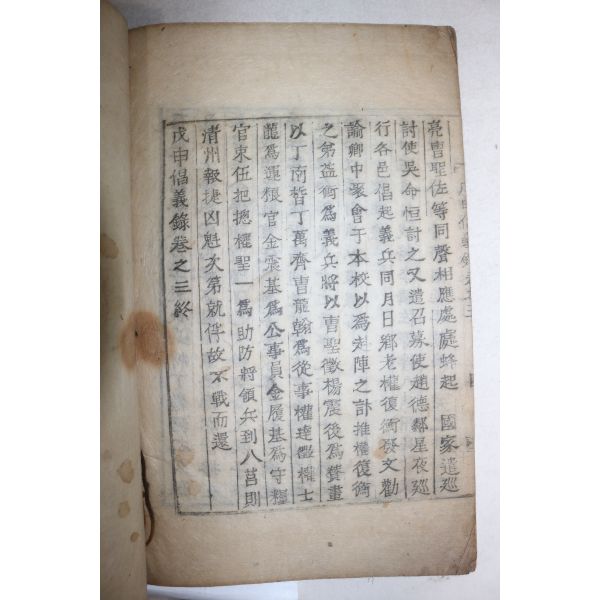 亮曺聖佐等同聲相應處處蜂起　國家遣巡
討使吳命恒討之又遣召募使趙德鄰星夜巡
行各邑倡起義兵同月日鄕老權復衡發文勸
論鄕中聚會于本校以爲赴陣之計推權復衡
之弟益衡爲義兵將以曺聖徵楊震後爲贊畫
以丁南皆丁萬齊曺龍翰爲從事權達鑑權士
龍爲運粮官金震基爲公事員金履基爲守糧
官束伍把摠權聖一爲助防將領兵到八莒則
淸州報捷凶魁次第就俘故不戰而還
戊申倡義錄卷之三終